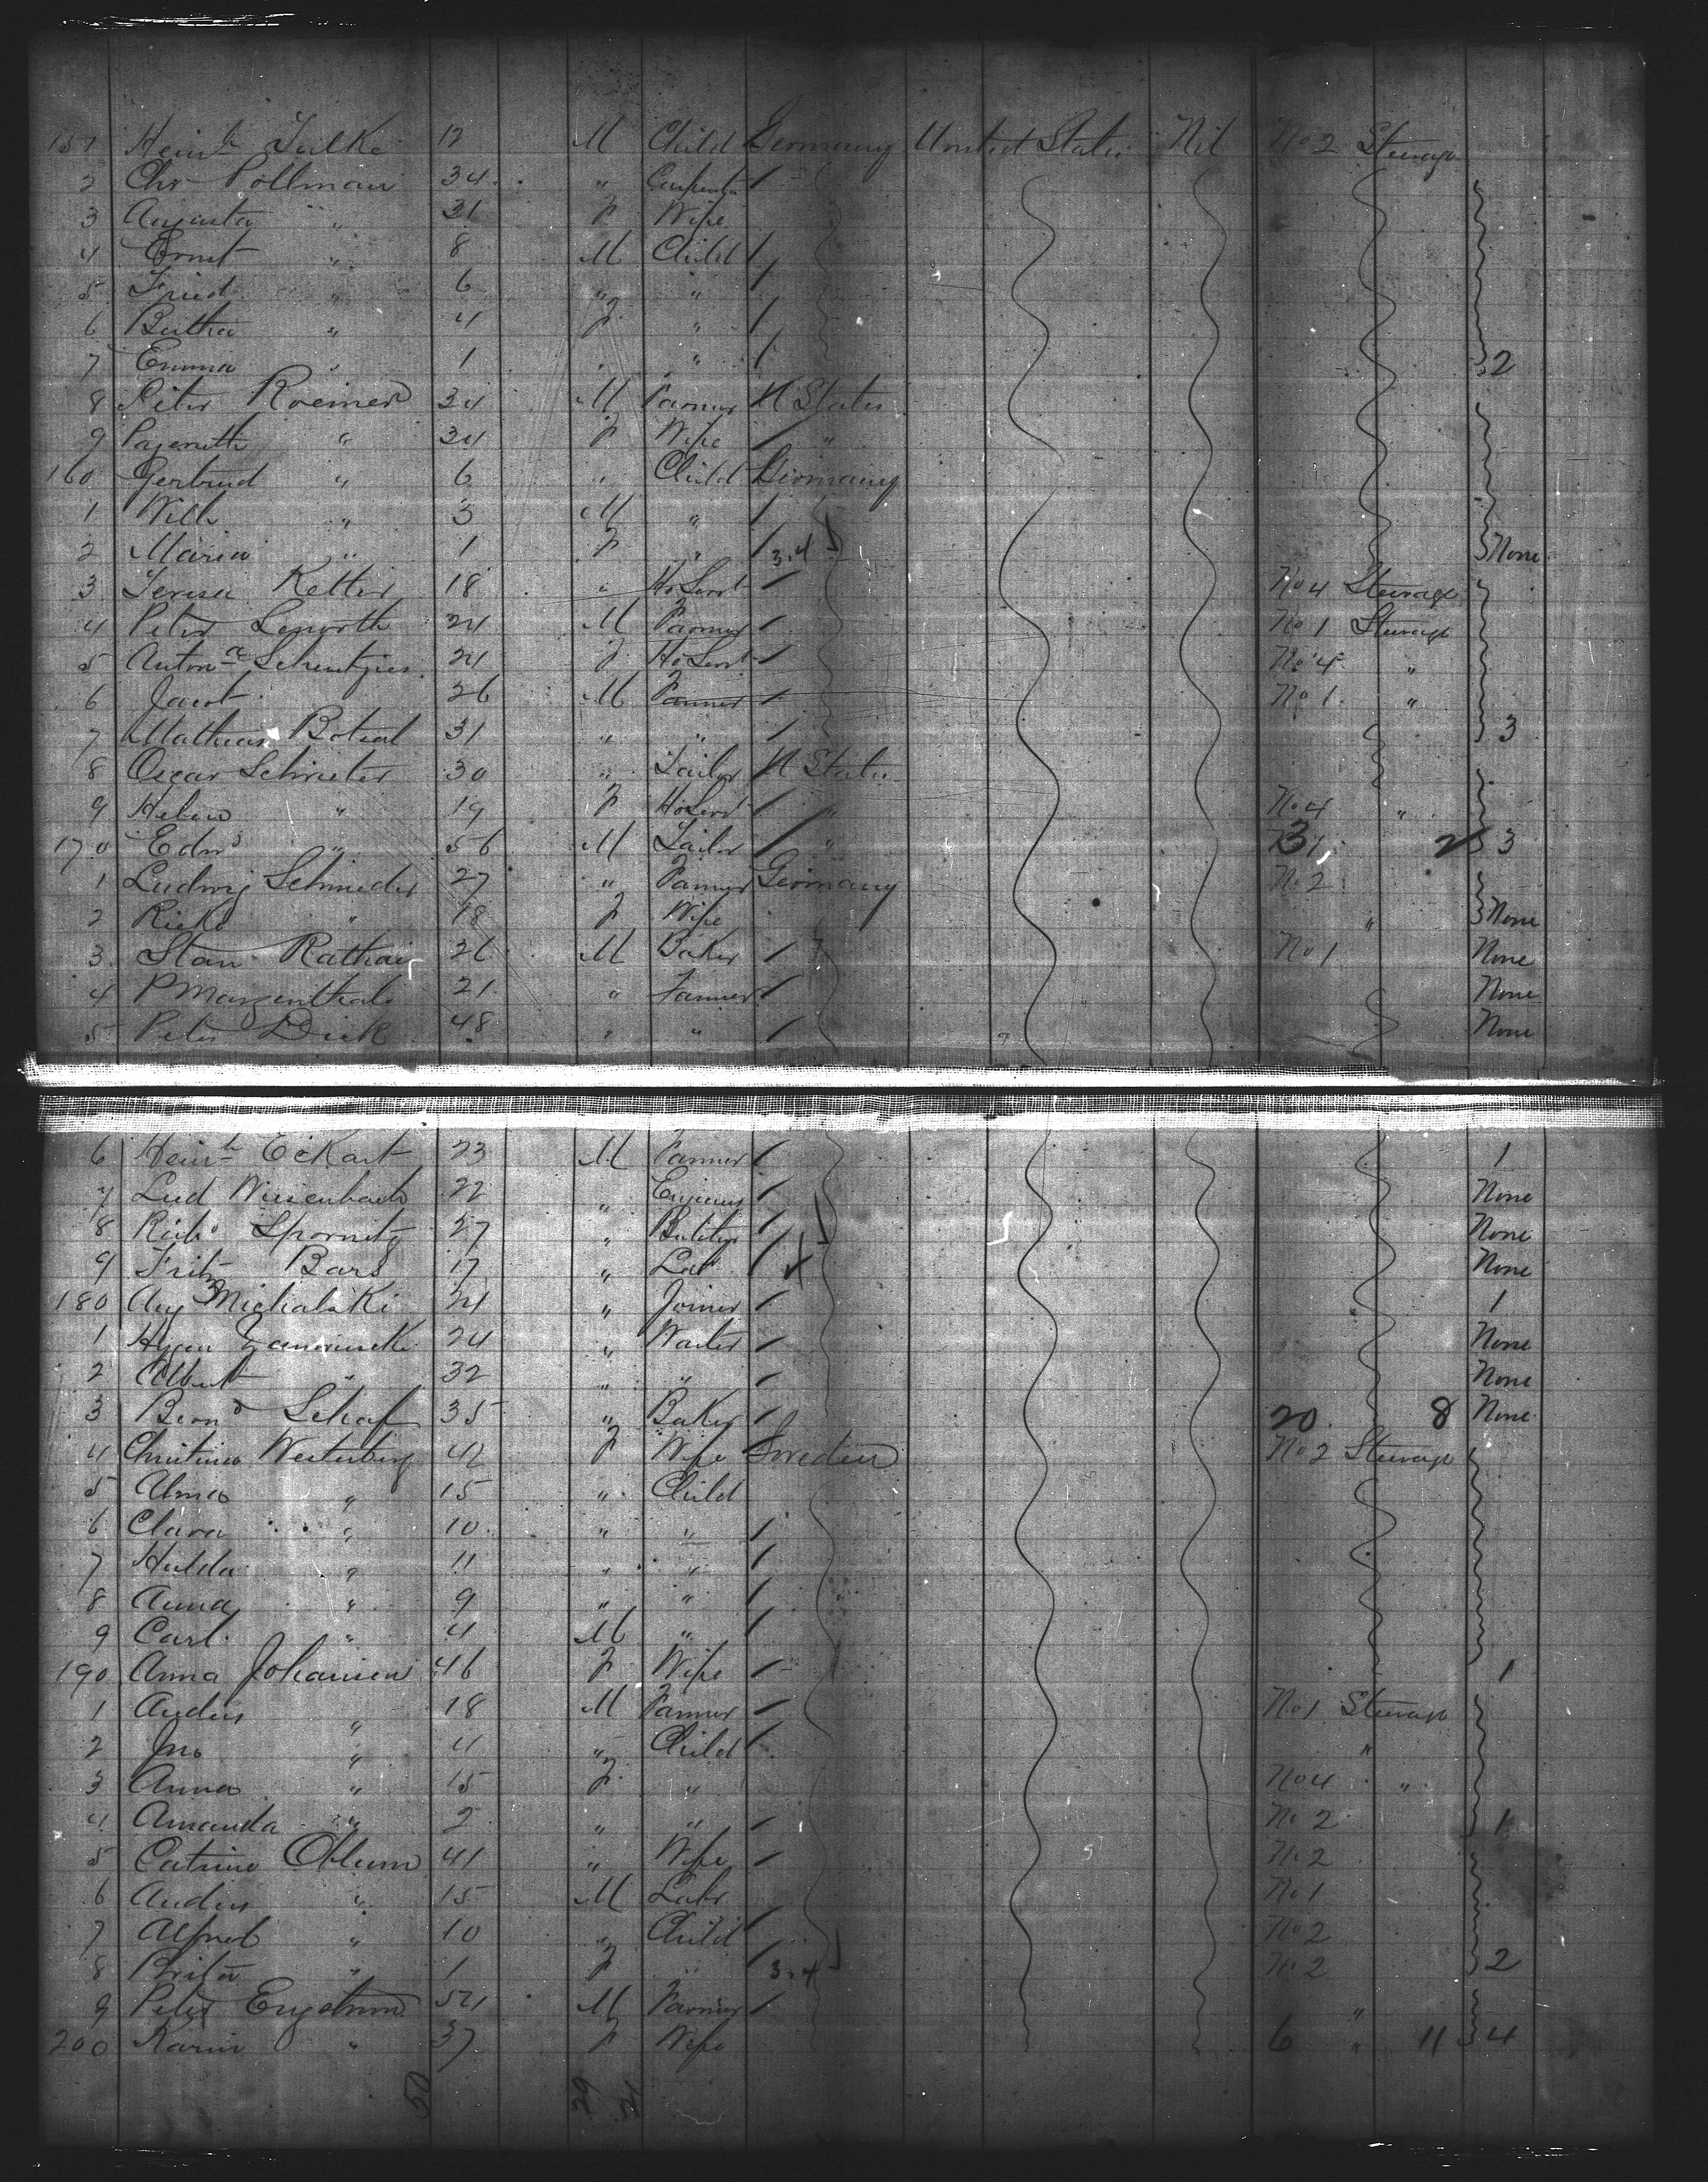 151 Heinh 12 M Child Germany United States Nil No 2 Steerage
2 Chr Pollman 34 " Carpentr
3 Augusta " 31 F Wife
4 Ernst " 8 M Child
5 Fried " 6 " "
6 Bertha " 4 F "
7 Emma 1 " 2
8 Peter Roemer 34 M Farmer U States
9 " 34 F Wife "
160 Gertrud " 6 " Child Germany
1 Wilh " 3 M "
2 Maria " 1 F " 3.4 None
3 Teresa Ketter 18 " Ho Servt No 4 Steerage
4 Peter 24 M Farmer No 1 Steerage
5 Antona 24 F Ho Servt No 4 "
6 Jacob 26 M Farmer No 1 "
7 Mathias 31 " " 3
8 Oscar Schrieter 30 " Tailor U States
9 Helene " 19 F Ho Servt " No 4 "
170 Edwd " 56 M Tailor " 3, 2 3
1 Ludwig Schnieder 27 " Farmer Germany No 2
2 Rieke " 18 F Wife " None
3 Stan 26 M Baker No 1 None
4 P 21 " Farmer None
5 Peter Dick 48 " " None
6 Heinh Eckart 23 M Farmer 1
7 Lud Wiesenbach 22 " None
8 Richd 27 " None
9 Fritz Bars 17 " Labr None
180 Aug Michalski 24 " Joiner 1
1 24 " Waiter None
2 Albert " 32 " " None
3 Bernd Schaf 35 " Baker 20 8 None
4 Christina Westerberg 42 F Wife Sweden No 2 Steerage
5 Alma " 15 " Child
6 Clara " 10 " "
7 Hulda " 11 " "
8 Anna " 9 " "
9 Carl " 4 M "
190 Anna Johansen 46 F Wife 1
1 Anders " 18 M Farmer No 1 Steerage
2 Jno " 11 " Child "
3 Anna " 15 F " No 4 "
4 Amanda " 2 " " No 2 1
5 Catrina 41 " Wife No 2
6 Anders " 15 M Labr No 1
7 Alfred " 10 " Child No 2
8 " 1 F " 3.4 No 2 2
9 Peter Engstrom 54 M Farmer "
200 Karin " 37 F Wife 6 " 11 4
50 29 21